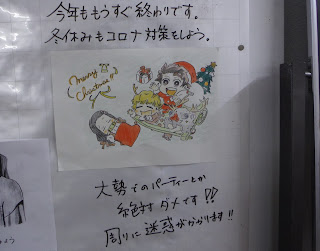 今年ももうすぐ終わりです。
冬休みもコロナ対策をしよう。
Merry
Christmas
大勢でのパーティーとか
絶対ダメです!!
周りに迷惑がかかります!!